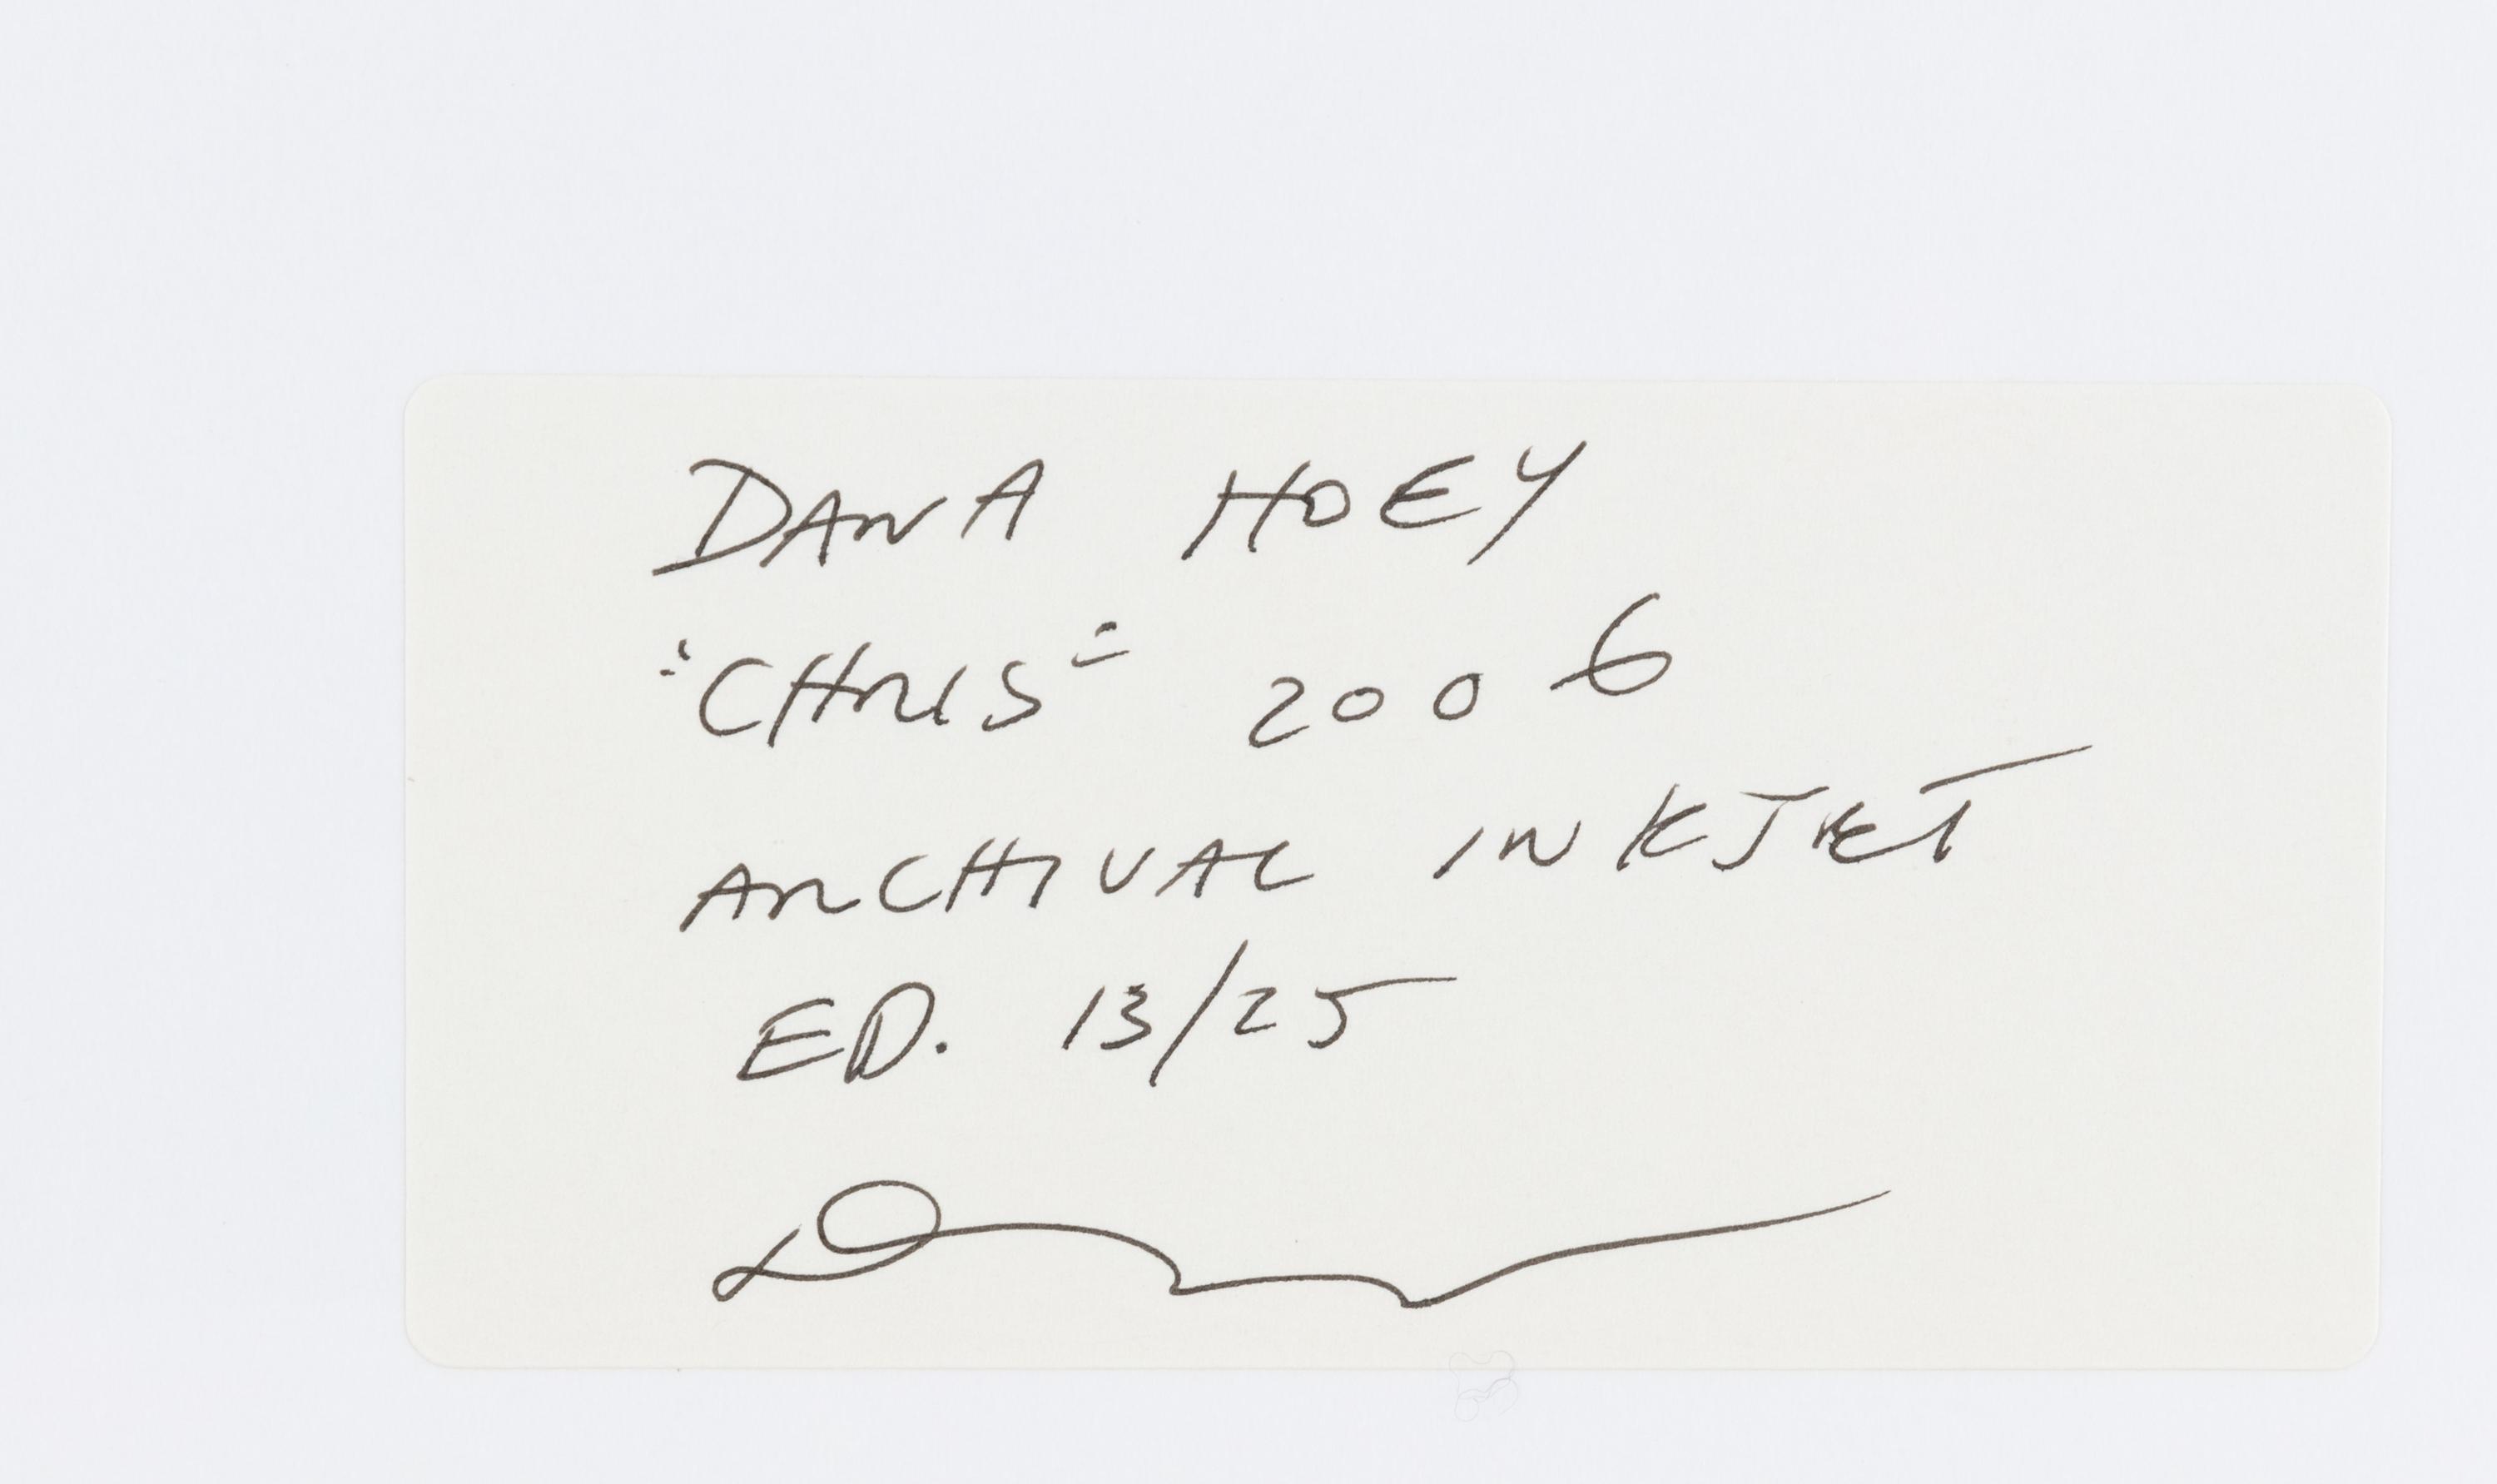 DANA HOEY
"CHRIS" 2006
ARCHIVAL INKJET
ED. 13/25